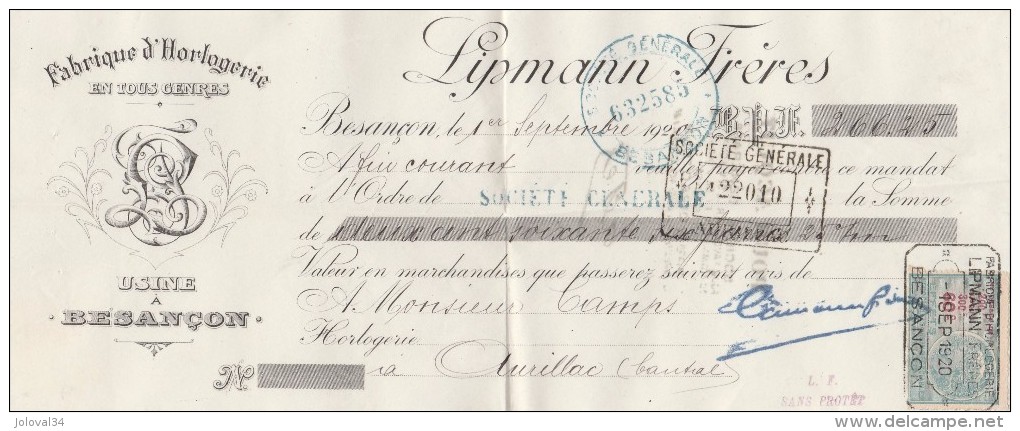 Fabrique d'Horlogerie
EN TOUS GENRES
USINE
À
BESANÇON
Lipmann Frères
SOCIÉTÉ GÉNÉRALE
632585
BESANÇON
Besançon, le 1er Septembre 1920 B.P.F. 266.25
A fin courant veuillez payer contre ce mandat
SOCIÉTÉ GÉNÉRALE
22010
à l'Ordre de SOCIÉTÉ GENERALE la Somme
de deux cent soixante six francs 25 c/m
Valeur en marchandises que passerez suivant avis de
A Monsieur Camps
Horlogerie
Nº à Aurillac (Cantal)
L. F.
SANS PROTÊT
FABRIQUE D'HORLOGERIE
LIPMANN FRÈRES
1 SEP 1920
BESANÇON
joloval34
delcampe.net